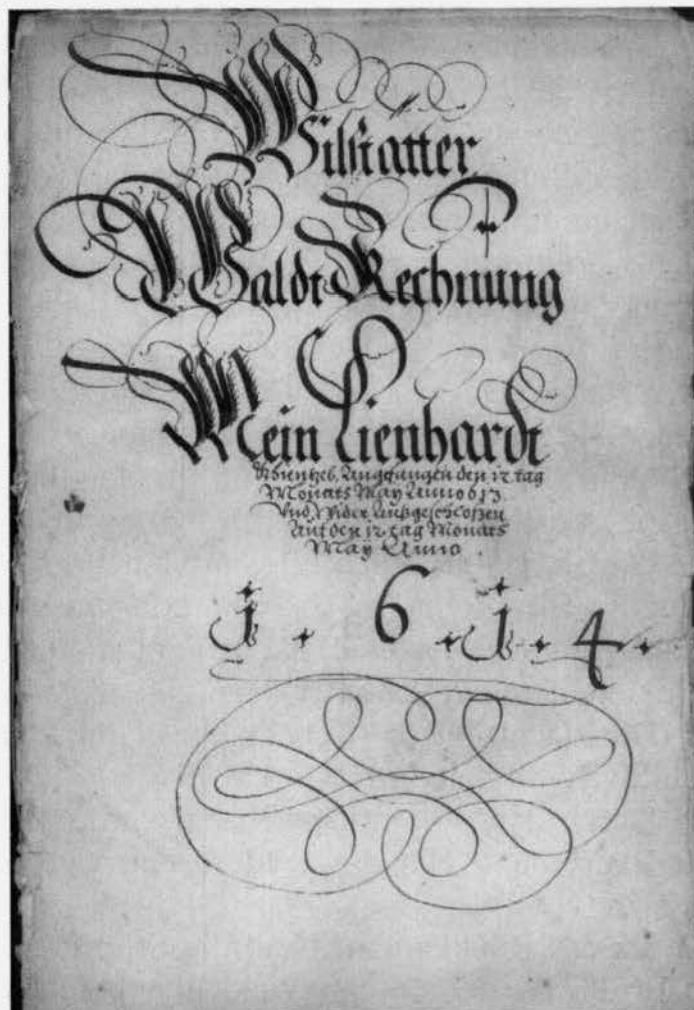 Wilstatter
Waldt Rechnung
Mein Lienhardt
Angefangen den 12 tag
Monats May Anno 613
Vnd Wider Außgeschloßen
Auf den 12 tag Monats
May Anno .
1 . 6 . 1 . 4 .